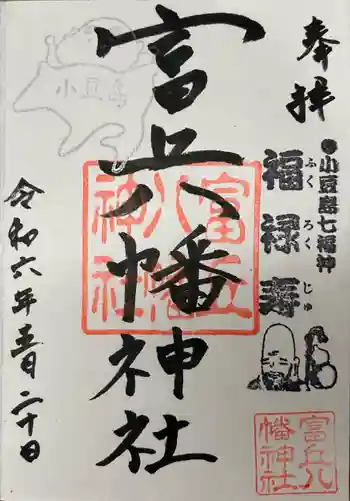 奉拝
●小豆島七福神
福禄寿
ふくろくじゅ
富丘八幡神社
富丘八幡神社
小豆島
令和六年五月二十日
富丘八幡神社